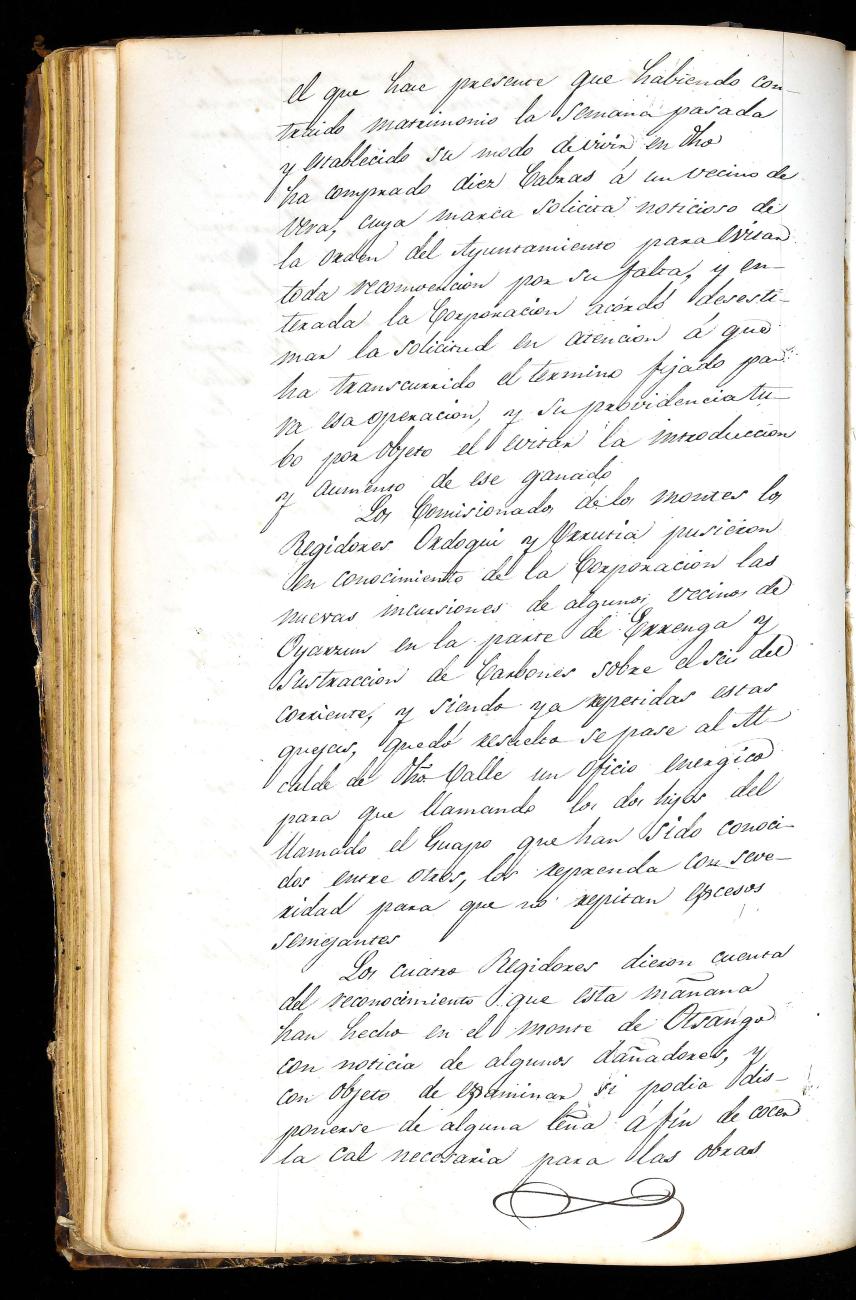 el que hace presente que habiendo con-
traido matrimonio la semana pasada
y establecido su modo de vivir en dho
ha comprado diez Cabras á un vecino de
Vera, cuya marca solicita noticioso de
la orden del Ayuntamiento para evitar
toda reconvencion por su falta, y en-
terada la Corporacion acordó desesti-
mar la solicitud en atencion á que
ha transcurrido el termino fijado pa-
ra esa operacion, y su providencia tu-
bo por objeto el evitar la introduccion
y aumento de ese ganado
Los Comisionados de los montes los
Regidores Ordoqui y Urrutia pusieron
en conocimiento de la Corporacion las
nuevas incursiones de algunos vecinos de
Oyarzun en la parte de Errenga y
sustraccion de Carbones sobre el seis del
corriente, y siendo ya repetidas estas
quejas, quedó resuelto se pase al Al-
calde de dho Valle un oficio energico
para que llamando los dos hijos del
llamado el Guapo que han sido conoci-
dos entre otros, los reprenda con seve-
ridad para que no repitan excesos
semejantes
Los cuatro Regidores dieron cuenta
del reconocimiento que esta mañana
han hecho en el monte de Otsango
con noticia de algunos dañadores, y
con objeto de examinar si podia dis-
ponerse de alguna leña á fin de cocer
la cal necesaria para las obras